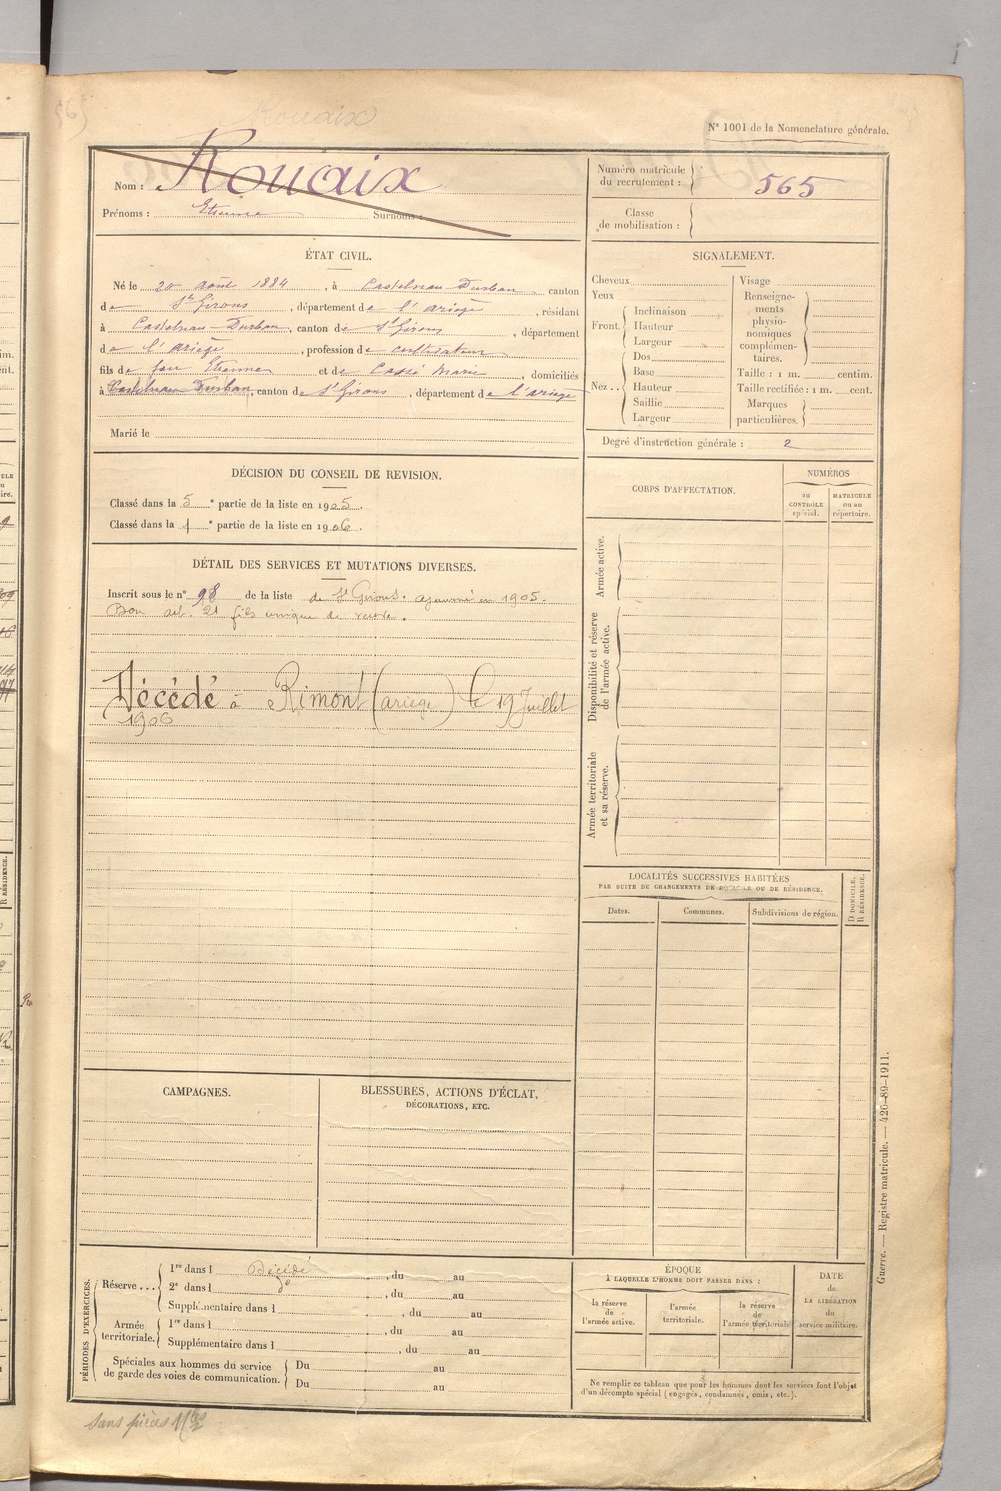 565
Rouaix
N° 1001 de la Nomenclature générale.
Nom : Rouaix
Prénoms : Etienne Surnoms :
Numéro matricule du recrutement : 565
Classe de mobilisation :
ÉTAT CIVIL.
Né le 20 août 1884, à Castelnau-Durban, canton
de St Girons, département de l'ariège, résidant
à Castelnau-Durban, canton de St Girons, département
de l'ariège, profession de cultivateur
fils de feu Etienne et de Cassé Marie, domiciliés
à Castelnau Durban, canton de St Girons, département de l'ariège
Marié le
SIGNALEMENT.
Cheveux
Yeux
Front. Inclinaison
Hauteur
Largeur
Nez.. Dos
Base
Hauteur
Saillie
Largeur
Visage
Renseigne-
ments
physio-
nomiques
complémen-
taires.
Taille : 1 m. centim.
Taille rectifiée : 1 m. cent.
Marques
particulières.
Degré d'instruction générale : 2
DÉCISION DU CONSEIL DE REVISION.
Classé dans la 5e partie de la liste en 1905.
Classé dans la 1e partie de la liste en 1906.
DÉTAIL DES SERVICES ET MUTATIONS DIVERSES.
Inscrit sous le n° 98 de la liste de St Girons. ajourné en 1905.
Bon art. 21 fils unique de veuve.
Décédé à Rimont (ariège) le 19 Juillet
1906
CORPS D'AFFECTATION.
NUMÉROS
AU CONTRÔLE spécial.
MATRICULE ou au répertoire.
Armée active.
Disponibilité et réserve de l'armée active.
Armée territoriale et sa réserve.
LOCALITÉS SUCCESSIVES HABITÉES
PAR SUITE DE CHANGEMENTS DE DOMICILE OU DE RÉSIDENCE.
Dates.
Communes.
Subdivisions de région.
D DOMICILE.
R RÉSIDENCE.
CAMPAGNES.
BLESSURES, ACTIONS D'ÉCLAT,
DÉCORATIONS, ETC.
PÉRIODES D'EXERCICES.
Réserve... 1re dans l Décédé, du au
2e dans l do, du au
Supplémentaire dans l, du au
Armée territoriale. 1re dans l, du au
Supplémentaire dans l, du au
Spéciales aux hommes du service
de garde des voies de communication.
Du au
Du au
ÉPOQUE
À LAQUELLE L'HOMME DOIT PASSER DANS :
la réserve de l'armée active.
l'armée territoriale.
la réserve de l'armée territoriale
DATE de LA LIBÉRATION du service militaire.
Ne remplir ce tableau que pour les hommes dont les services font l'objet
d'un décompte spécial (engagés, condamnés, omis, etc.).
Guerre. — Registre matricule. — 426-89-1911.
Sans pièces